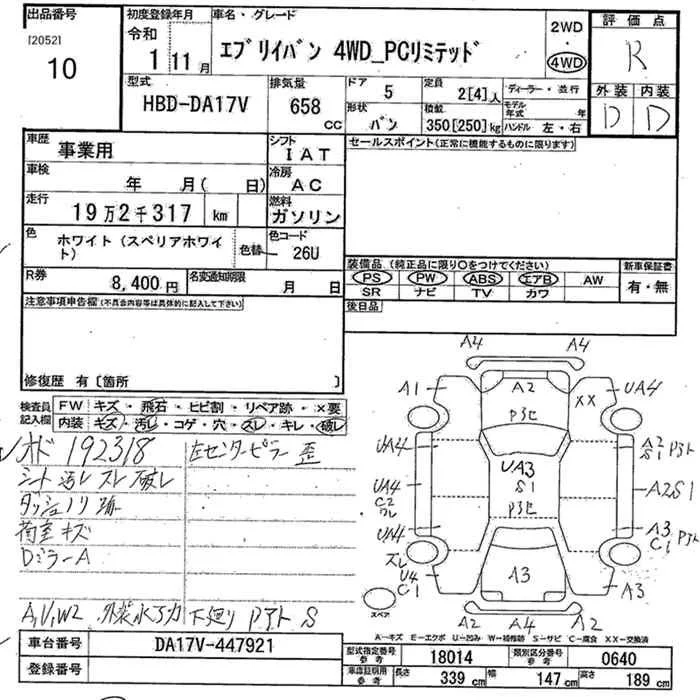 出品番号
[2052]
10
初度登録年月
令和
1 11月
車名・グレード
エブリイバン 4WD_PCリミテッド
2WD
・
4WD
評価点
R
外装 内装
D D
型式
HBD-DA17V
排気量
658 CC
ドア 5
形状 バン
定員 2[4]人
積載 350[250]kg
ディーラー・並行
モデル年式 年
ハンドル 左・右
車歴 事業用
シフト IAT
車検 年 月( 日)
冷房 AC
走行 19万2千317 km
燃料 ガソリン
色 ホワイト(スペリアホワイト)
色替
色コード 26U
R券 8,400円
名変通知期限 月 日
セールスポイント(正常に機能するものに限ります)
装備品(純正品に限り○をつけてください)
PS PW ABS エアB AW
SR ナビ TV カワ
新車保証書
有・無
後日品
注意事項申告欄(不具合内容等は具体的に記入して下さい)
修復歴 有〔箇所 〕
検査員記入欄
FW キズ・飛石・ヒビ割・リペア跡・×要
内装 キズ・汚レ・コゲ・穴・スレ・キレ・破レ
オド 192318 左センターピラー歪
シート汚レスレ破レ
ダッシュノリ跡
荷室キズ
Dミラー A
A,U,W2 外装水アカ 下廻りPアト S
A4 A4
A1 A2 UA4
XX
P3セ
UA4 A2 S1 Pアト
UA3
S1
UA4 A2S1
C2
ワレ
P3セ
UA4 A3 C1 Pアト
スレ
U4
C1
A3
A3
スペア
A2 A4 A2
A-キズ E-エクボ U-凹み W-補修跡 S-サビ C-腐食 XX-交換済
車台番号 DA17V-447921
登録番号
型式指定番号 参考 18014
類別区分番号 参考 0640
車庫証明用 参考
長さ 339 cm 幅 147 cm 高さ 189 cm